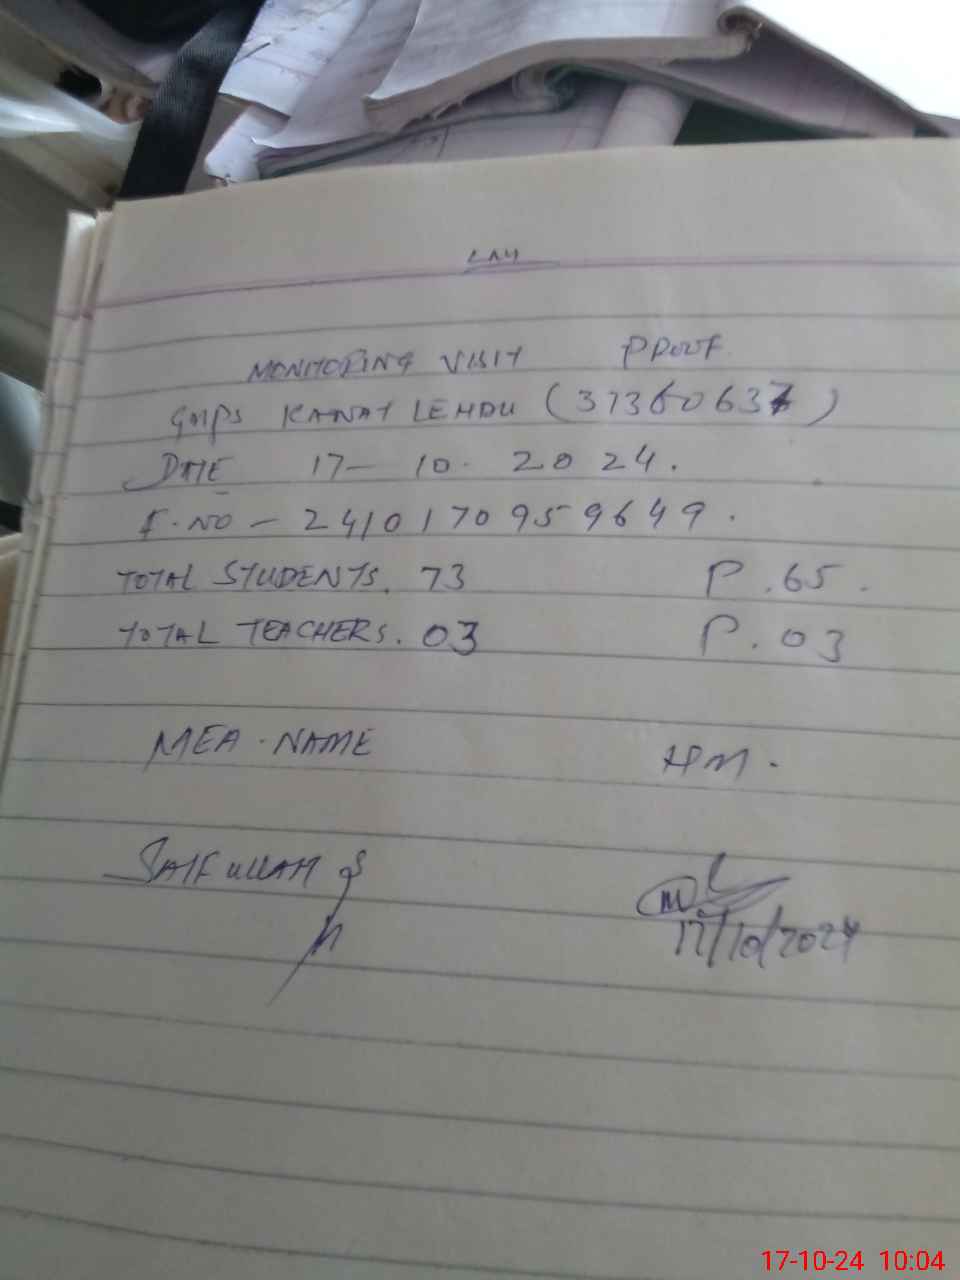 MONITORING VISIT PROOF
GMPS KANAT LEHDU (37360637)
DATE 17-10-2024.
F.NO - 2410170959649.
TOTAL STUDENTS. 73 P.65.
TOTAL TEACHERS. 03 P.03
MEA.NAME HM.
SAIFULLAH
17/10/2024
17-10-24 10:04